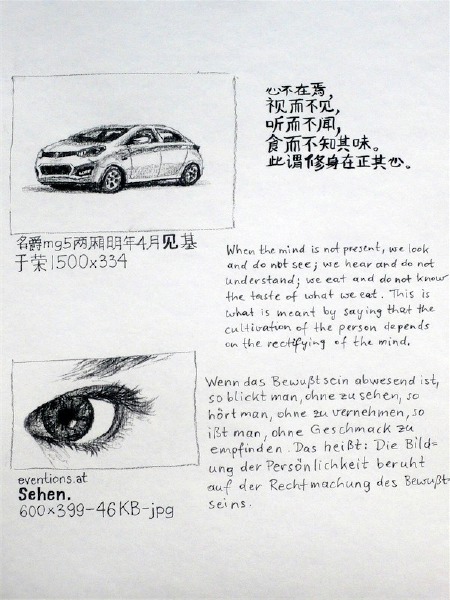 心不在焉，
视而不见，
听而不闻，
食而不知其味。
此谓修身在正其心。
名爵mg5两厢明年4月见基
于荣1500x334
When the mind is not present, we look
and do not see; we hear and do not
understand; we eat and do not know
the taste of what we eat. This is
what is meant by saying that the
cultivation of the person depends
on the rectifying of the mind.
Wenn das Bewußtsein abwesend ist,
so blickt man, ohne zu sehen, so
hört man, ohne zu vernehmen, so
ißt man, ohne Geschmack zu
empfinden. Das heißt: Die Bild=
ung der Persönlichkeit beruht
auf der Rechtmachung des Bewußt-
seins.
eventions.at
Sehen.
600x399-46KB-jpg